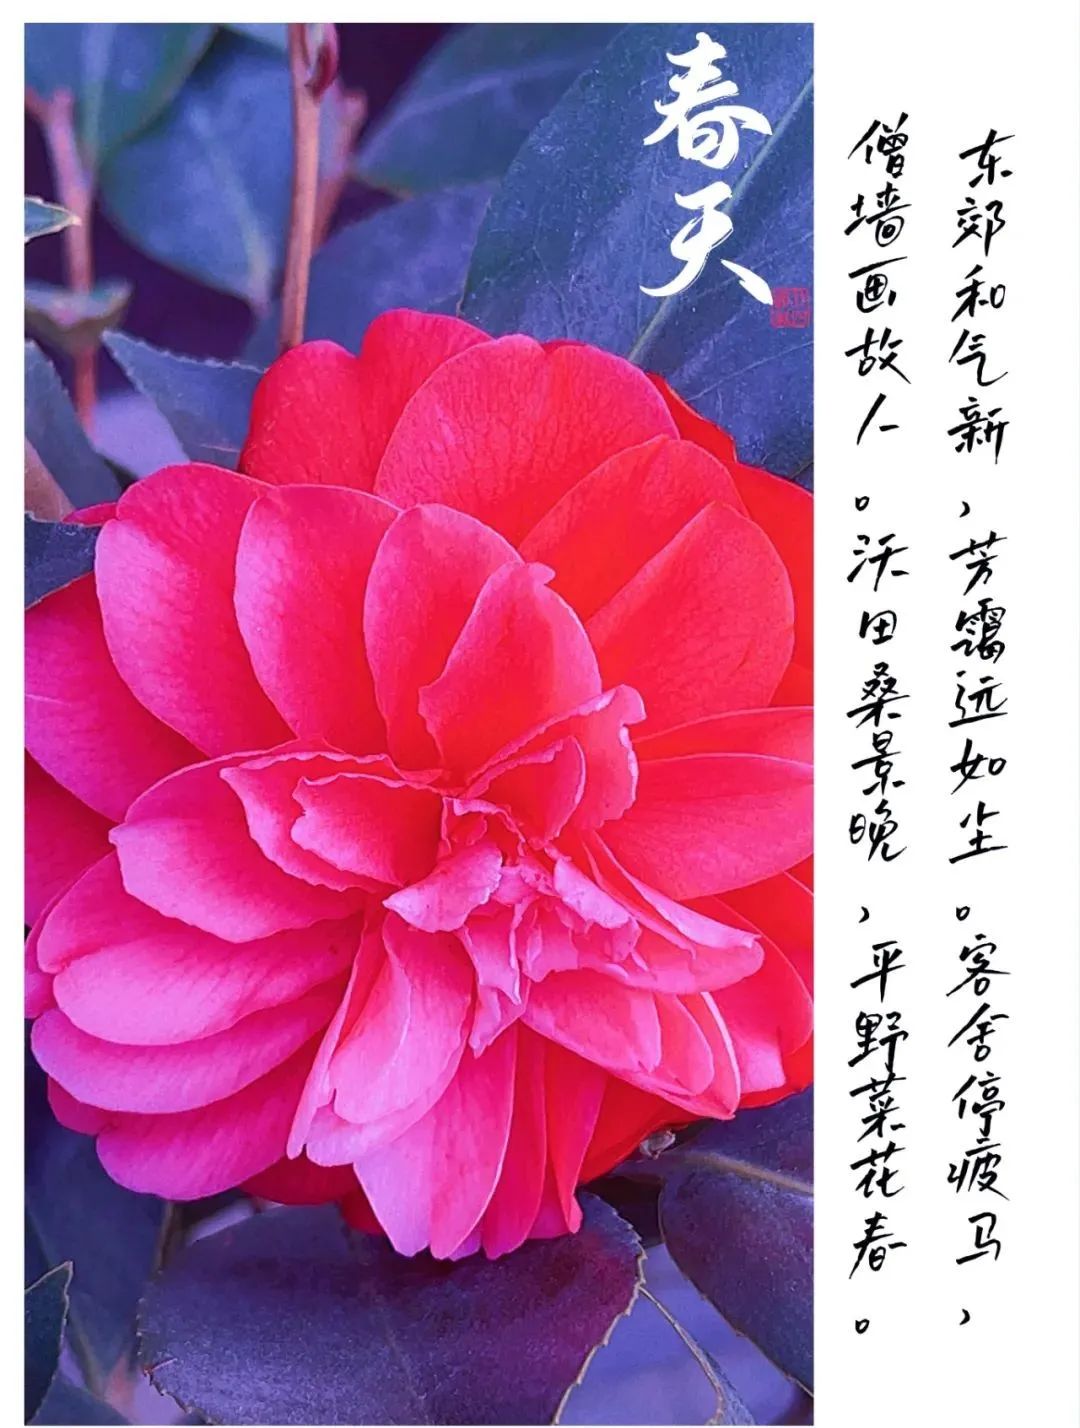 春天
东郊和气新，芳霭远如尘。客舍停疲马，
僧墙画故人。沃田桑景晚，平野菜花春。